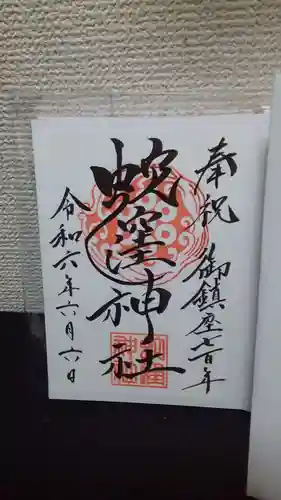 奉祝 御鎮座七百年
蛇窪神社
令和六年六月六日